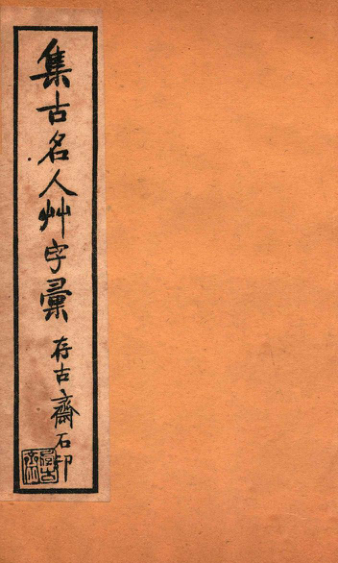 集古名人艸字彙
存古齋石印